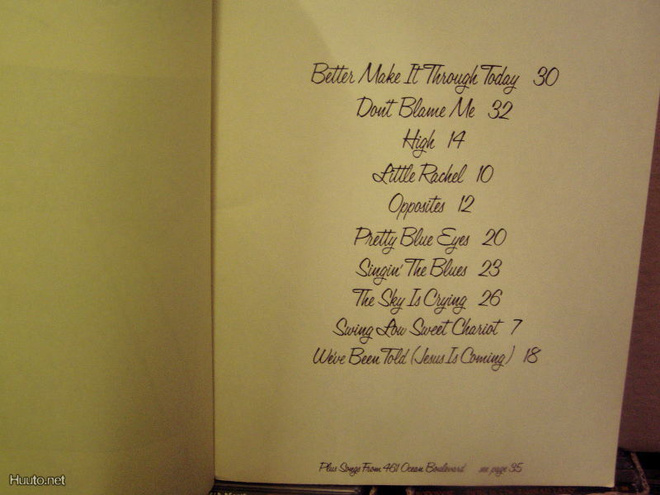 Better Make It Through Today 30
Dont Blame Me 32
High 14
Little Rachel 10
Opposites 12
Pretty Blue Eyes 20
Singin' The Blues 23
The Sky Is Crying 26
Swing Low Sweet Chariot 7
We've Been Told (Jesus Is Coming) 18
Plus Songs From 461 Ocean Boulevard see page 35
Huuto.net